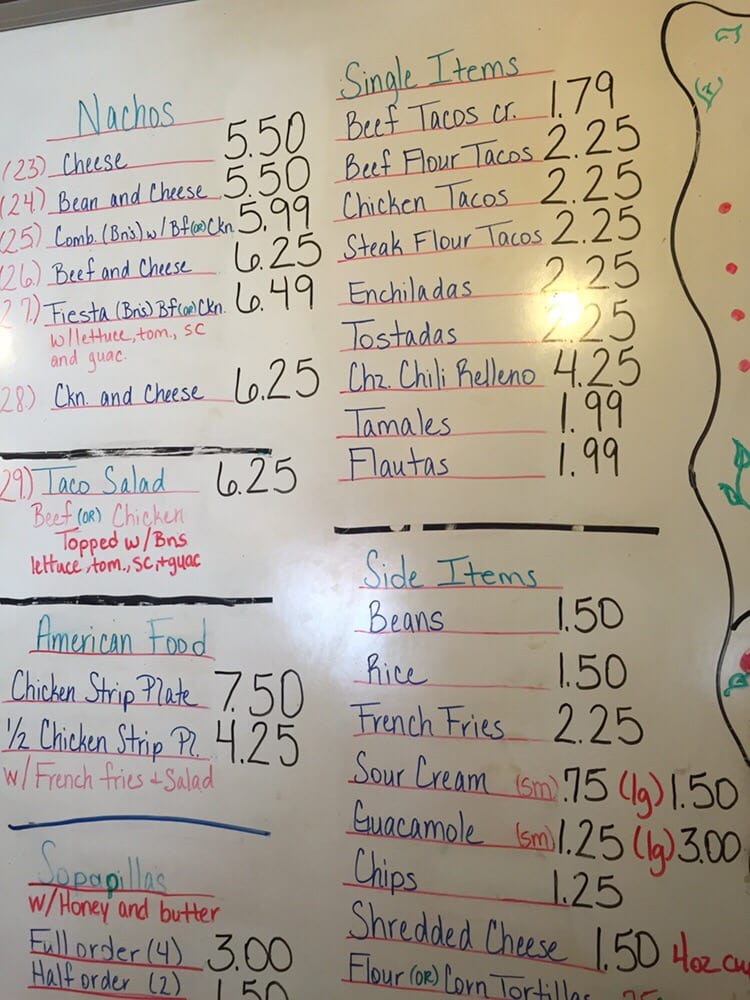 Nachos
(23) Cheese 5.50
(24) Bean and Cheese 5.50
(25) Comb. (Bn's.) w/ Bf (or) Ckn. 5.99
(26.) Beef and Cheese 6.25
27.) Fiesta (Bn's) Bf (or) Ckn. 6.49
w/lettuce, tom., sc
and guac.
28.) Ckn. and Cheese 6.25
29.) Taco Salad 6.25
Beef (OR) Chicken
Topped w/Bns
lettuce, tom., sc, + guac
American Food
Chicken Strip Plate 7.50
1/2 Chicken Strip Pl. 4.25
w/ French fries + Salad
Sopapillas
w/Honey and butter
Full order (4) 3.00
Half order (2) 1.50
Single Items
Beef Tacos cr. 1.79
Beef Flour Tacos 2.25
Chicken Tacos 2.25
Steak Flour Tacos 2.25
Enchiladas 2.25
Tostadas 2.25
Chz. Chili Relleno 4.25
Tamales 1.99
Flautas 1.99
Side Items
Beans 1.50
Rice 1.50
French Fries 2.25
Sour Cream (sm) .75 (lg) 1.50
Guacamole (sm) 1.25 (lg) 3.00
Chips 1.25
Shredded Cheese 1.50 4oz
Flour (OR) Corn Tortillas